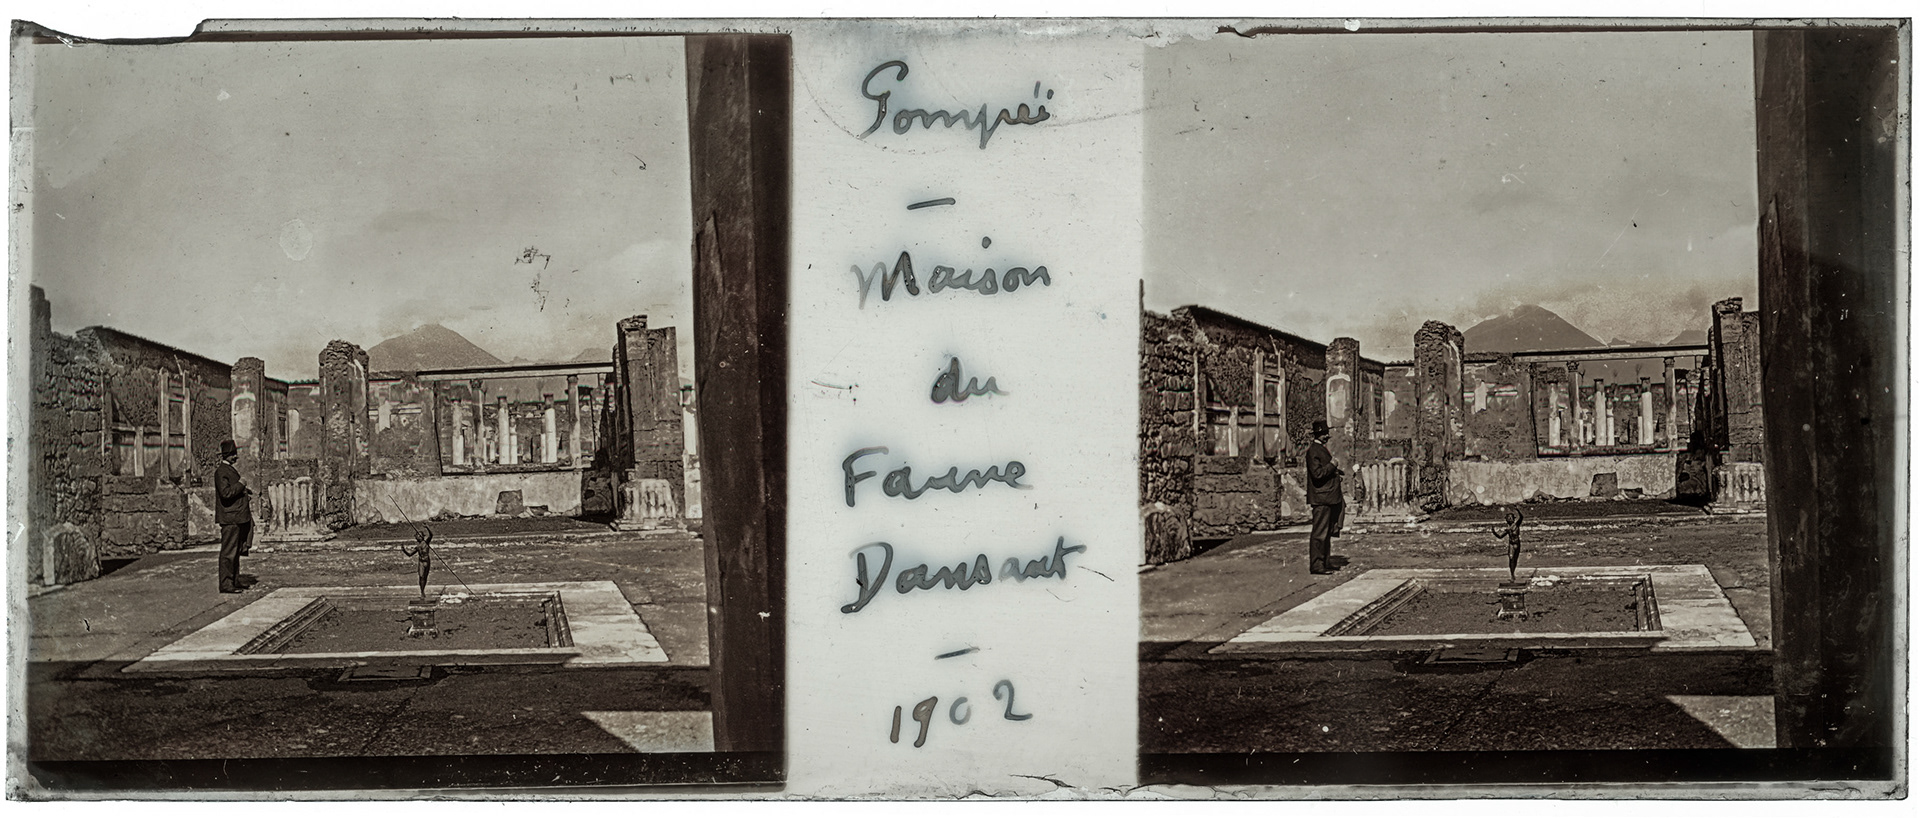 Pompéï
—
Maison
du
Faune
Dansant
—
1902